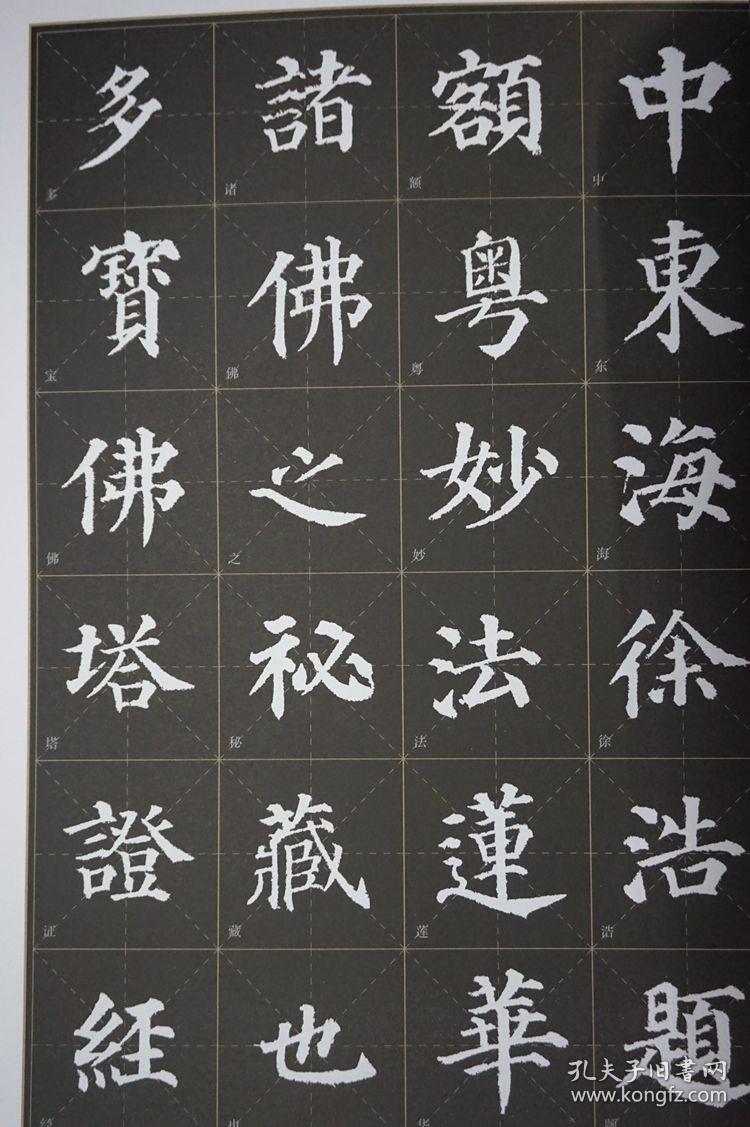 中東海徐浩題
額粤妙法蓮華
諸佛之秘藏也
多寶佛塔證經
中
东
海
徐
浩
额
粤
妙
法
莲
华
诸
佛
之
秘
藏
也
多
宝
佛
塔
证
孔夫子旧書网
www.kongfz.com